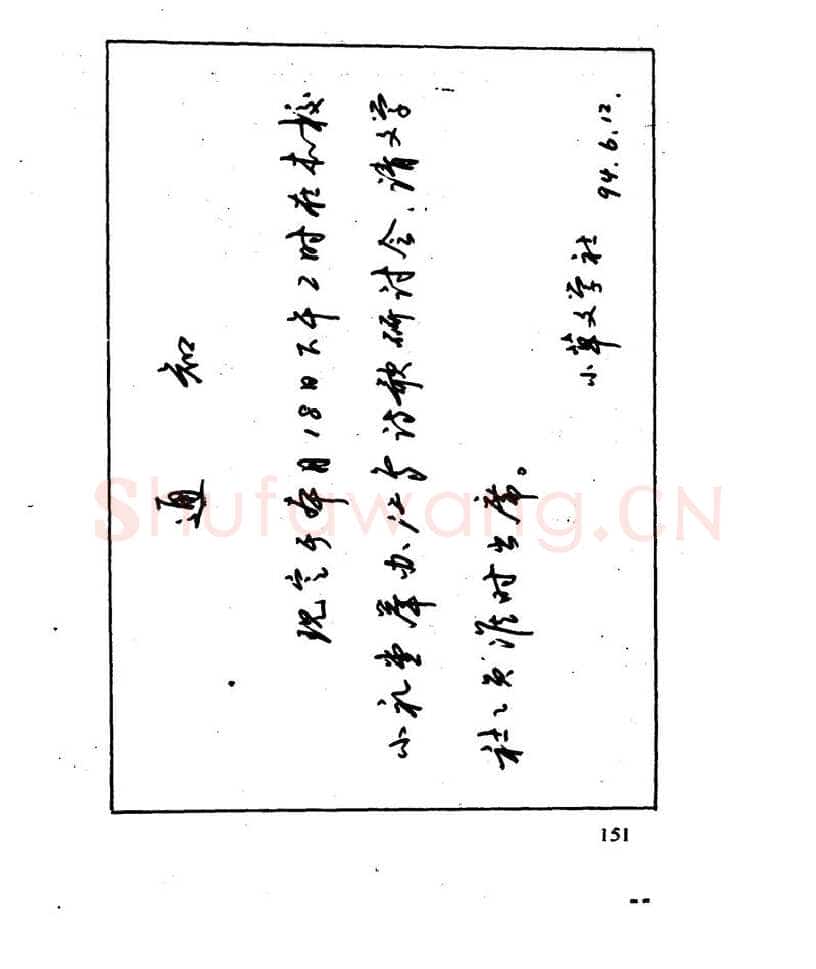 通知
现定于本月18日下午2时在本校
小礼堂举办诗歌研讨会，请文学
社々员准时出席。
小草文学社
94.6.12.
151
Shufawang.CN